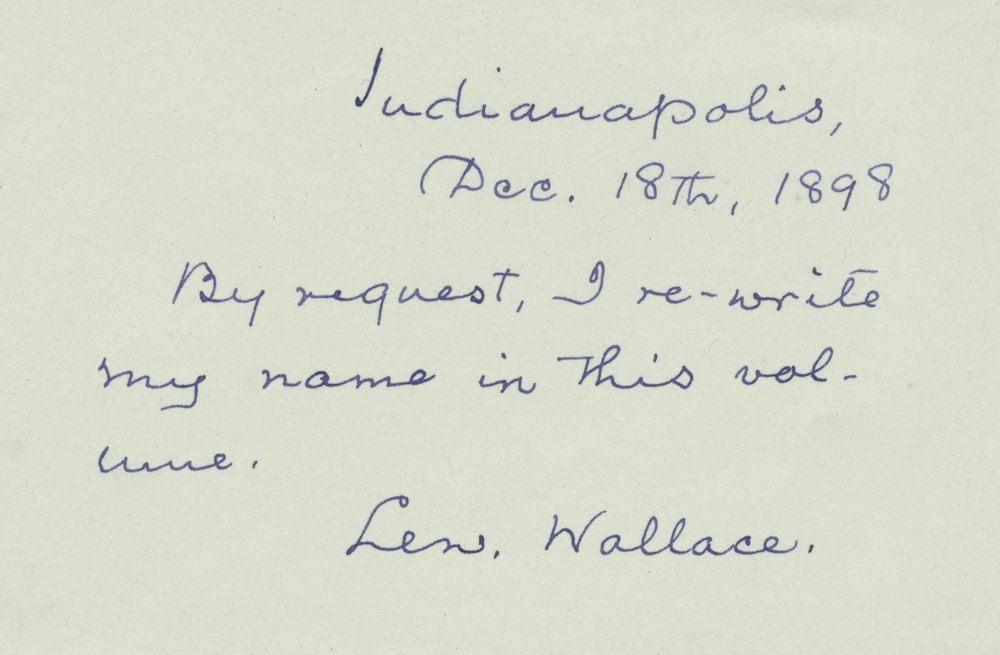 Indianapolis,
Dec. 18th, 1898
By request, I re-write
my name in this vol-
ume.
Lew. Wallace.